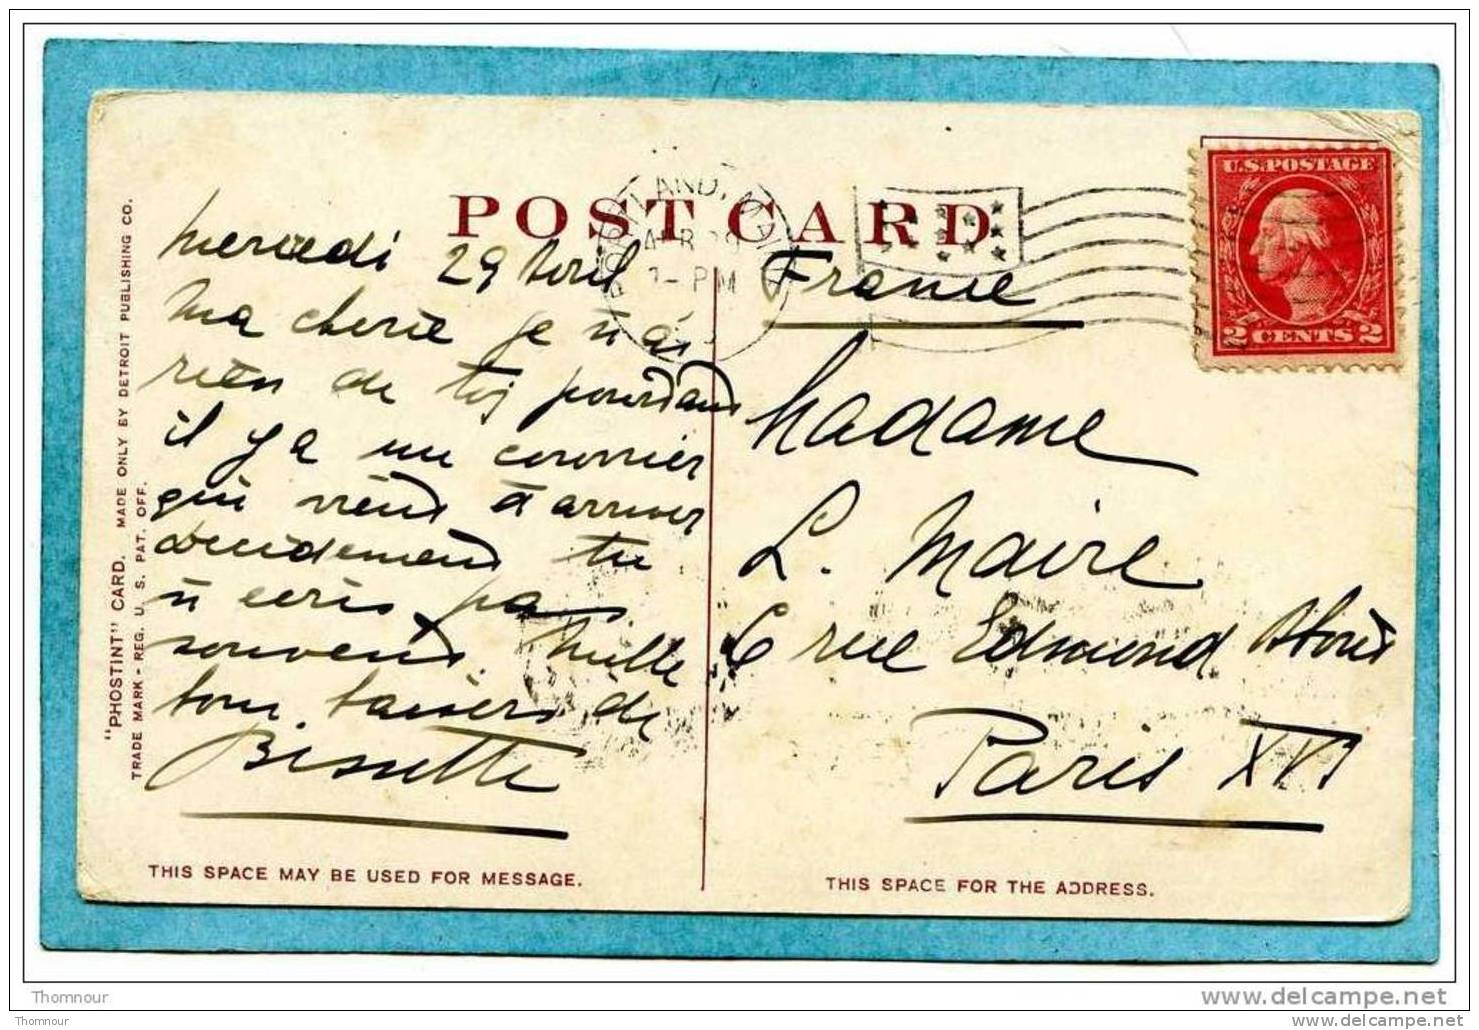 POST CARD
PORTLAND, MAINE
APR 29
1 - PM
U.S. POSTAGE
2 CENTS 2
"PHOSTINT" CARD. MADE ONLY BY DETROIT PUBLISHING CO.
TRADE MARK - REG. U. S. PAT. OFF.
mercredi 29 Avril
Ma cherie je n'ai
rien de toi pourtant
il y a un courrier
qui vient d'arriver
decidement tu
n'ecris pas
souvent. Mille
bons baisers de
Bissette
France
Madame
L. Maire
6 rue Edmond About
Paris XVI
THIS SPACE MAY BE USED FOR MESSAGE.
THIS SPACE FOR THE ADDRESS.
Thomnour
Thomnour
www.delcampe.net
www.delcampe.net